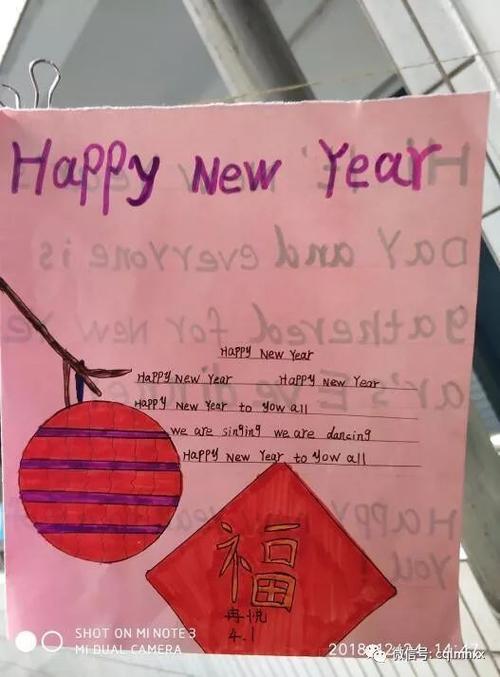 Happy New Year
Happy New Year
Happy New Year Happy New Year
Happy New Year to yow all
we are singing we are dancing
Happy New Year to yow all
福
冉悦
4.1
SHOT ON MI NOTE 3
MI DUAL CAMERA
微信号: cqlmhxx